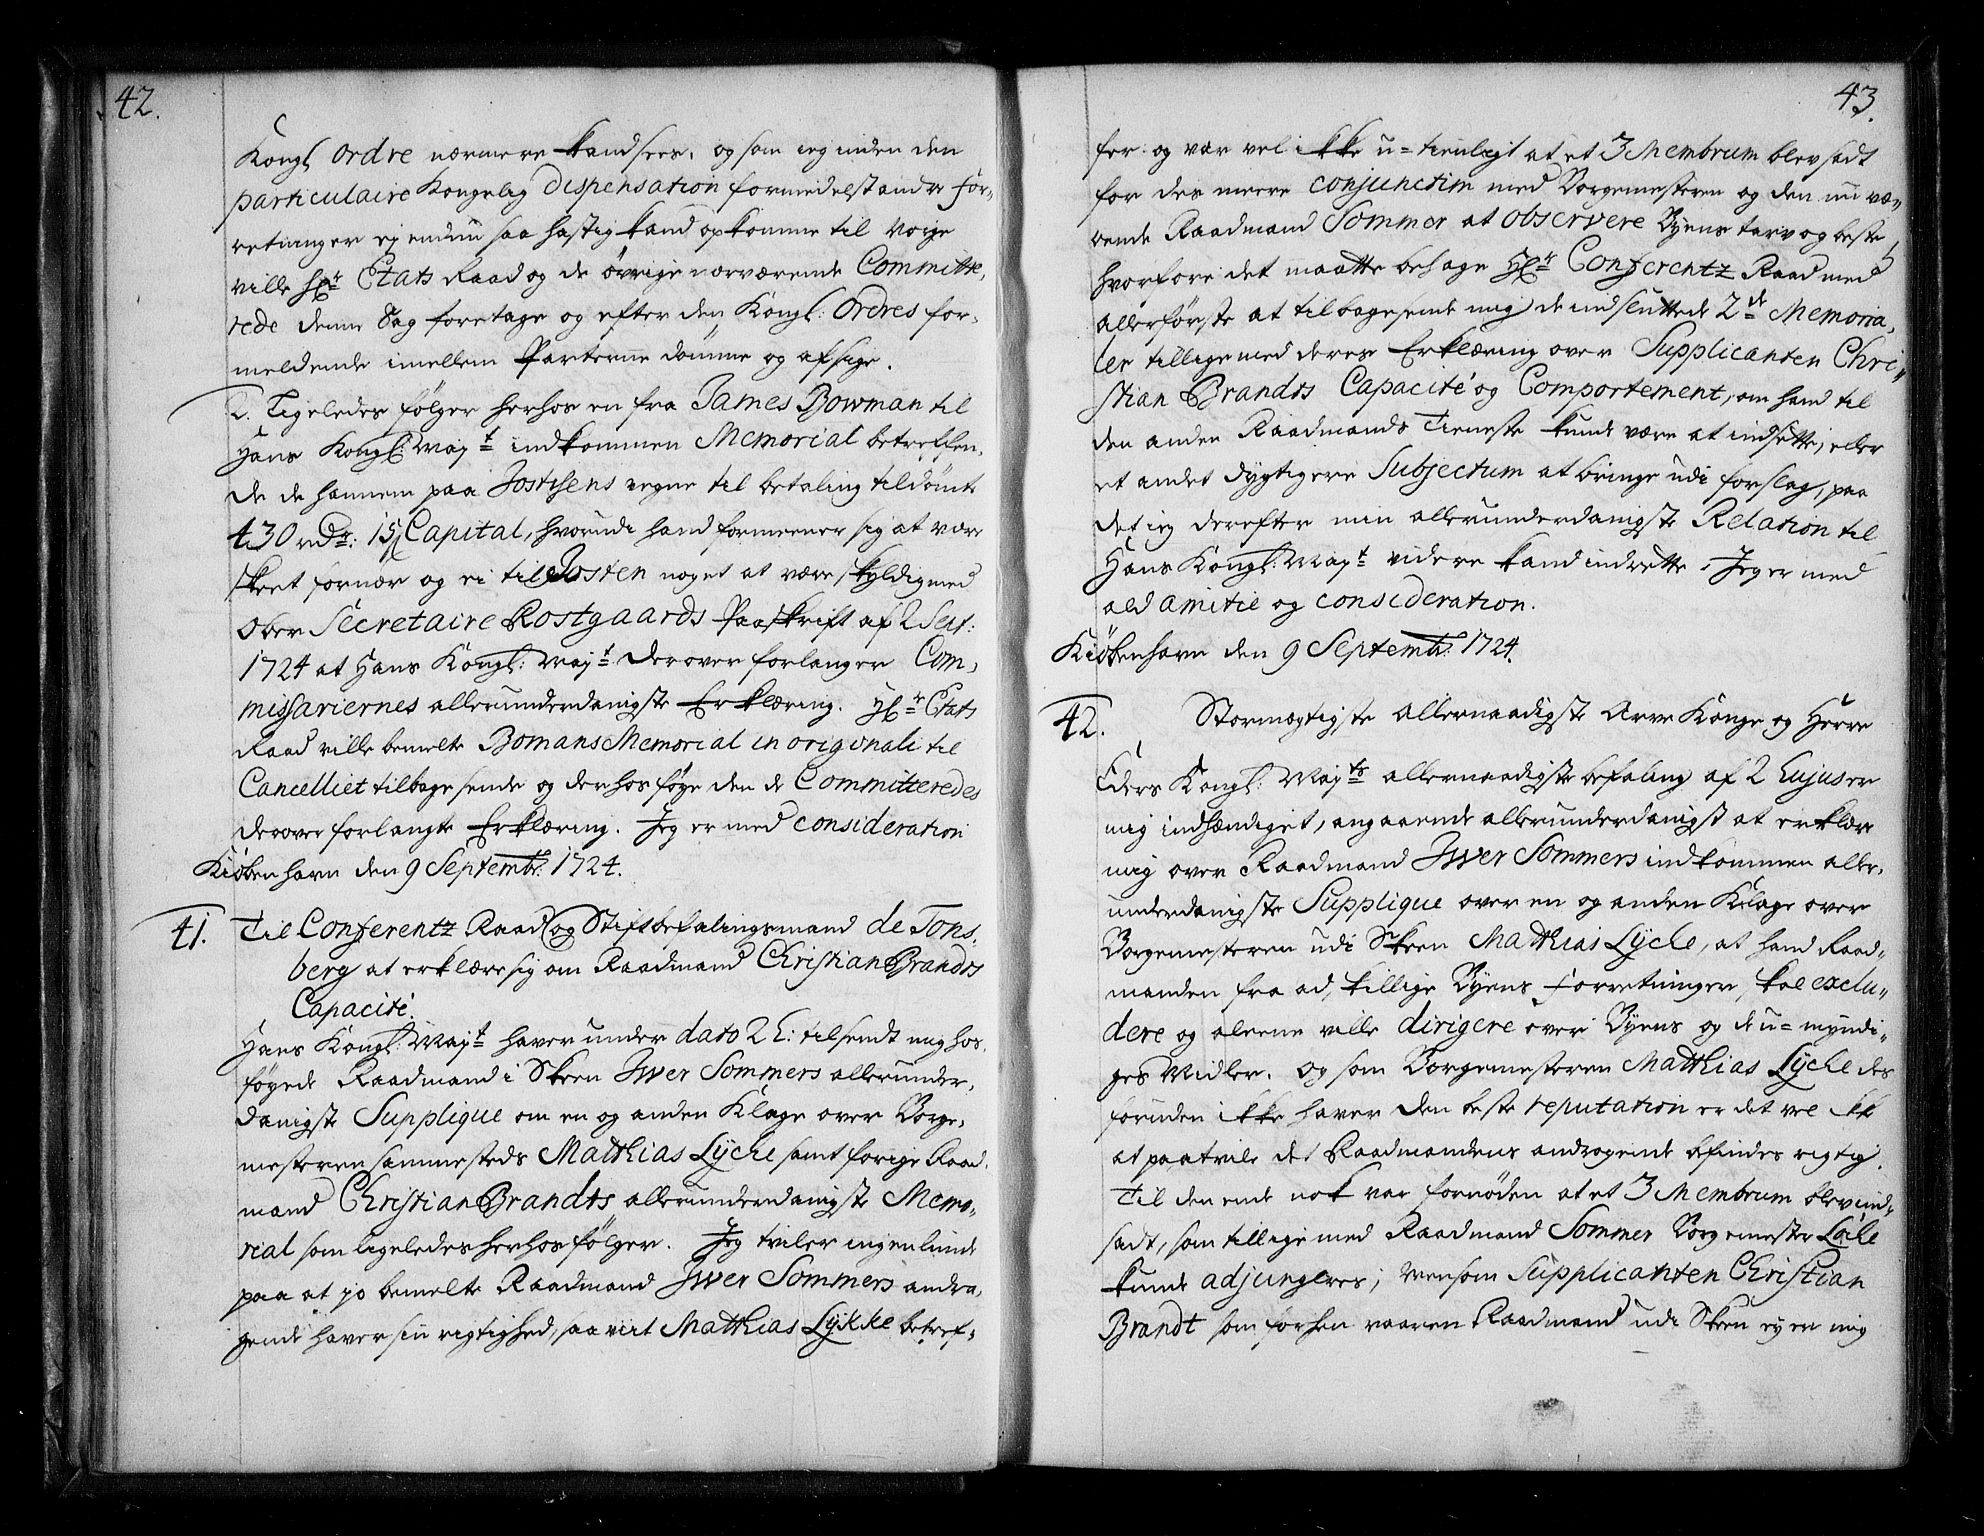 42.
Kongl Ordre nærmere kand sees, og som ieg inden den
particulaire Kongelig Dispensation formedelst andre for-
retninger ej endnu saa hastig kand opkomme til Norge
ville Hr: Etats Raad og de øvrige nærværende Committe-
rede denne Sag foretage og efter den Kongl: Ordres for-
meldende imellem Parterne dømme og afsige.
Ligeledes følger herhos en fra James Bowman til
Hans Kongl: Mayt indkommen Memorial betreffen-
de de hannem paa Jostsens vegne til betaling tildømte
430 rdr: 15 Capital, hvorudi hand formeener sig at være
skeet fornær og ei til Josten noget at være skyldig med
Ober Secretaire Rostgaards Paaskrift af 2 Sept:
1724 at Hans Kongl: Mayt: derover forlanger Com-
missariernes allerunderdanigste Erklæring. Hr: Etats
Raad ville bemelte Bomans Memorial in originali til
Cancelliet tilbage sende og derhos føye den de Committeredes
derover forlangte Erklæring. Jeg er med consideration
Kiøbenhavn den 9 Septembr: 1724.
41. Til Conferentz Raad og Stiftbefalingsmand de Tons-
berg at erklære sig om Raadmand Christian Brandts
Capacité.
Hans Kongl: Mayt haver under dato 2 h: tilsendt mig hos-
føyede Raadmand i Skeen Iwer Sommers allerunder-
danigste Supplique om en og anden Klage over Borge-
mesteren sammesteds Matthias Lyche samt forige Raad-
mand Christian Brandts allerunderdanigste Memo-
rial som ligeledes herhos følger. Jeg tviler ingenlunde
paa at jo bemelte Raadmand Iwer Sommers andra-
gende haver sin rigtighed, saa vit Matthias Lykke betref-
43.
fer. og var vel ikke u-tienligt at et 3 Membrum blev sadt
for des meere conjunctim med Borgemesteren og den nu væ-
rende Raadmand Sommer at observere Byens tarv og beste,
hvorfore det maatte behage Hr: Conferentz Raad med
allerførste at tilbagesende mig de indsluttede 2de Memoria-
ler tillige med deres Erklæring over Supplicanten Chri-
stian Brandts Capacité og Comportement, om hand til
den anden Raadmands Tieneste kunde være at indsette, eller
et andet dygtigere Subjectum at bringe udi forslag, paa
det ieg derefter min allerunderdanigste Relation til
Hans Kongl: Mayt videre kand indrette. Jeg er med
ald amitie og consideration.
Kiøbenhavn den 9 Septembr: 1724.
42. Stormægtigste Allernaadigste Arve Konge og Herre
Eders Kongl: Mayts allernaadigste befaling af 2 hujus er
mig indhændiget, angaaende allerunderdanigst at erklære
mig over Raadmand Iwer Sommers indkommen aller-
underdanigste Supplique over en og anden Klage over
Borgemesteren udi Skeen Matthias Lyche, at hand Raad-
manden fra ad skillige Byens Forretninger, skal exclu-
dere og aleene ville dirigere over Byens og de u-myndi-
ges Midler. Og som Borgemesteren Matthias Lyche des
foruden ikke haver den beste reputation er det vel ikke
at paatvile det Raadmandens andragende befindes rigtig.
Til den ende nok var fornøden at et 3 Membrum blev ind-
sadt, som tillige med Raadmand Sommer Borgemester Løche
kunde adjungeres; Mensom Supplicanten Christian
Brandt som forhen vaaren Raadmand udi Skeen ey er mig